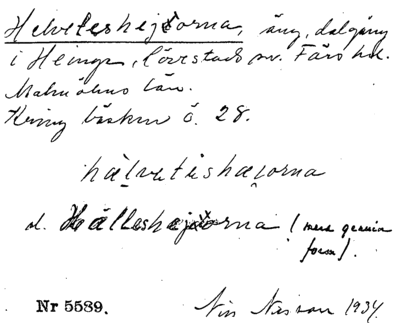 Helveteshejorna, äng, dalgång
i Heinge, Lövestads sn. Färs hd.
Malmöhus län.
Kring bäcken å. 28.
hälvetishæjorna
el. Hälleshejorna (mera genuin
form).
Nr 5589.
Nils Nilsson 1934